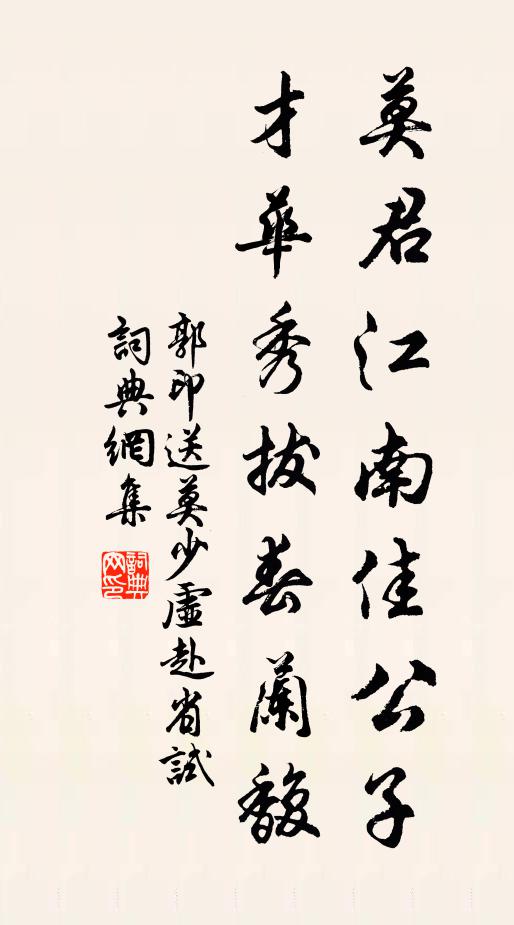 莫君江南佳公子
才華秀拔春蘭馥
郭印送莫少虛赴省試
詞典網集
詞典网印